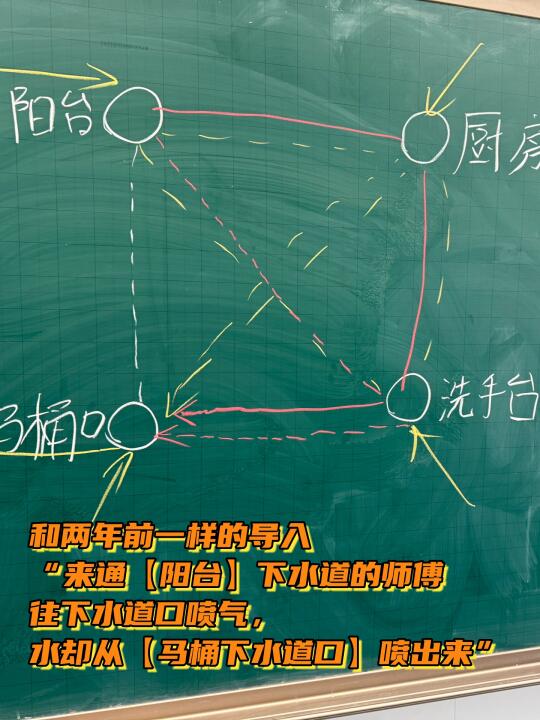 阳台
厨房
马桶口
洗手台
和两年前一样的导入
“来通【阳台】下水道的师傅
往下水道口喷气，
水却从【马桶下水道口】喷出来”